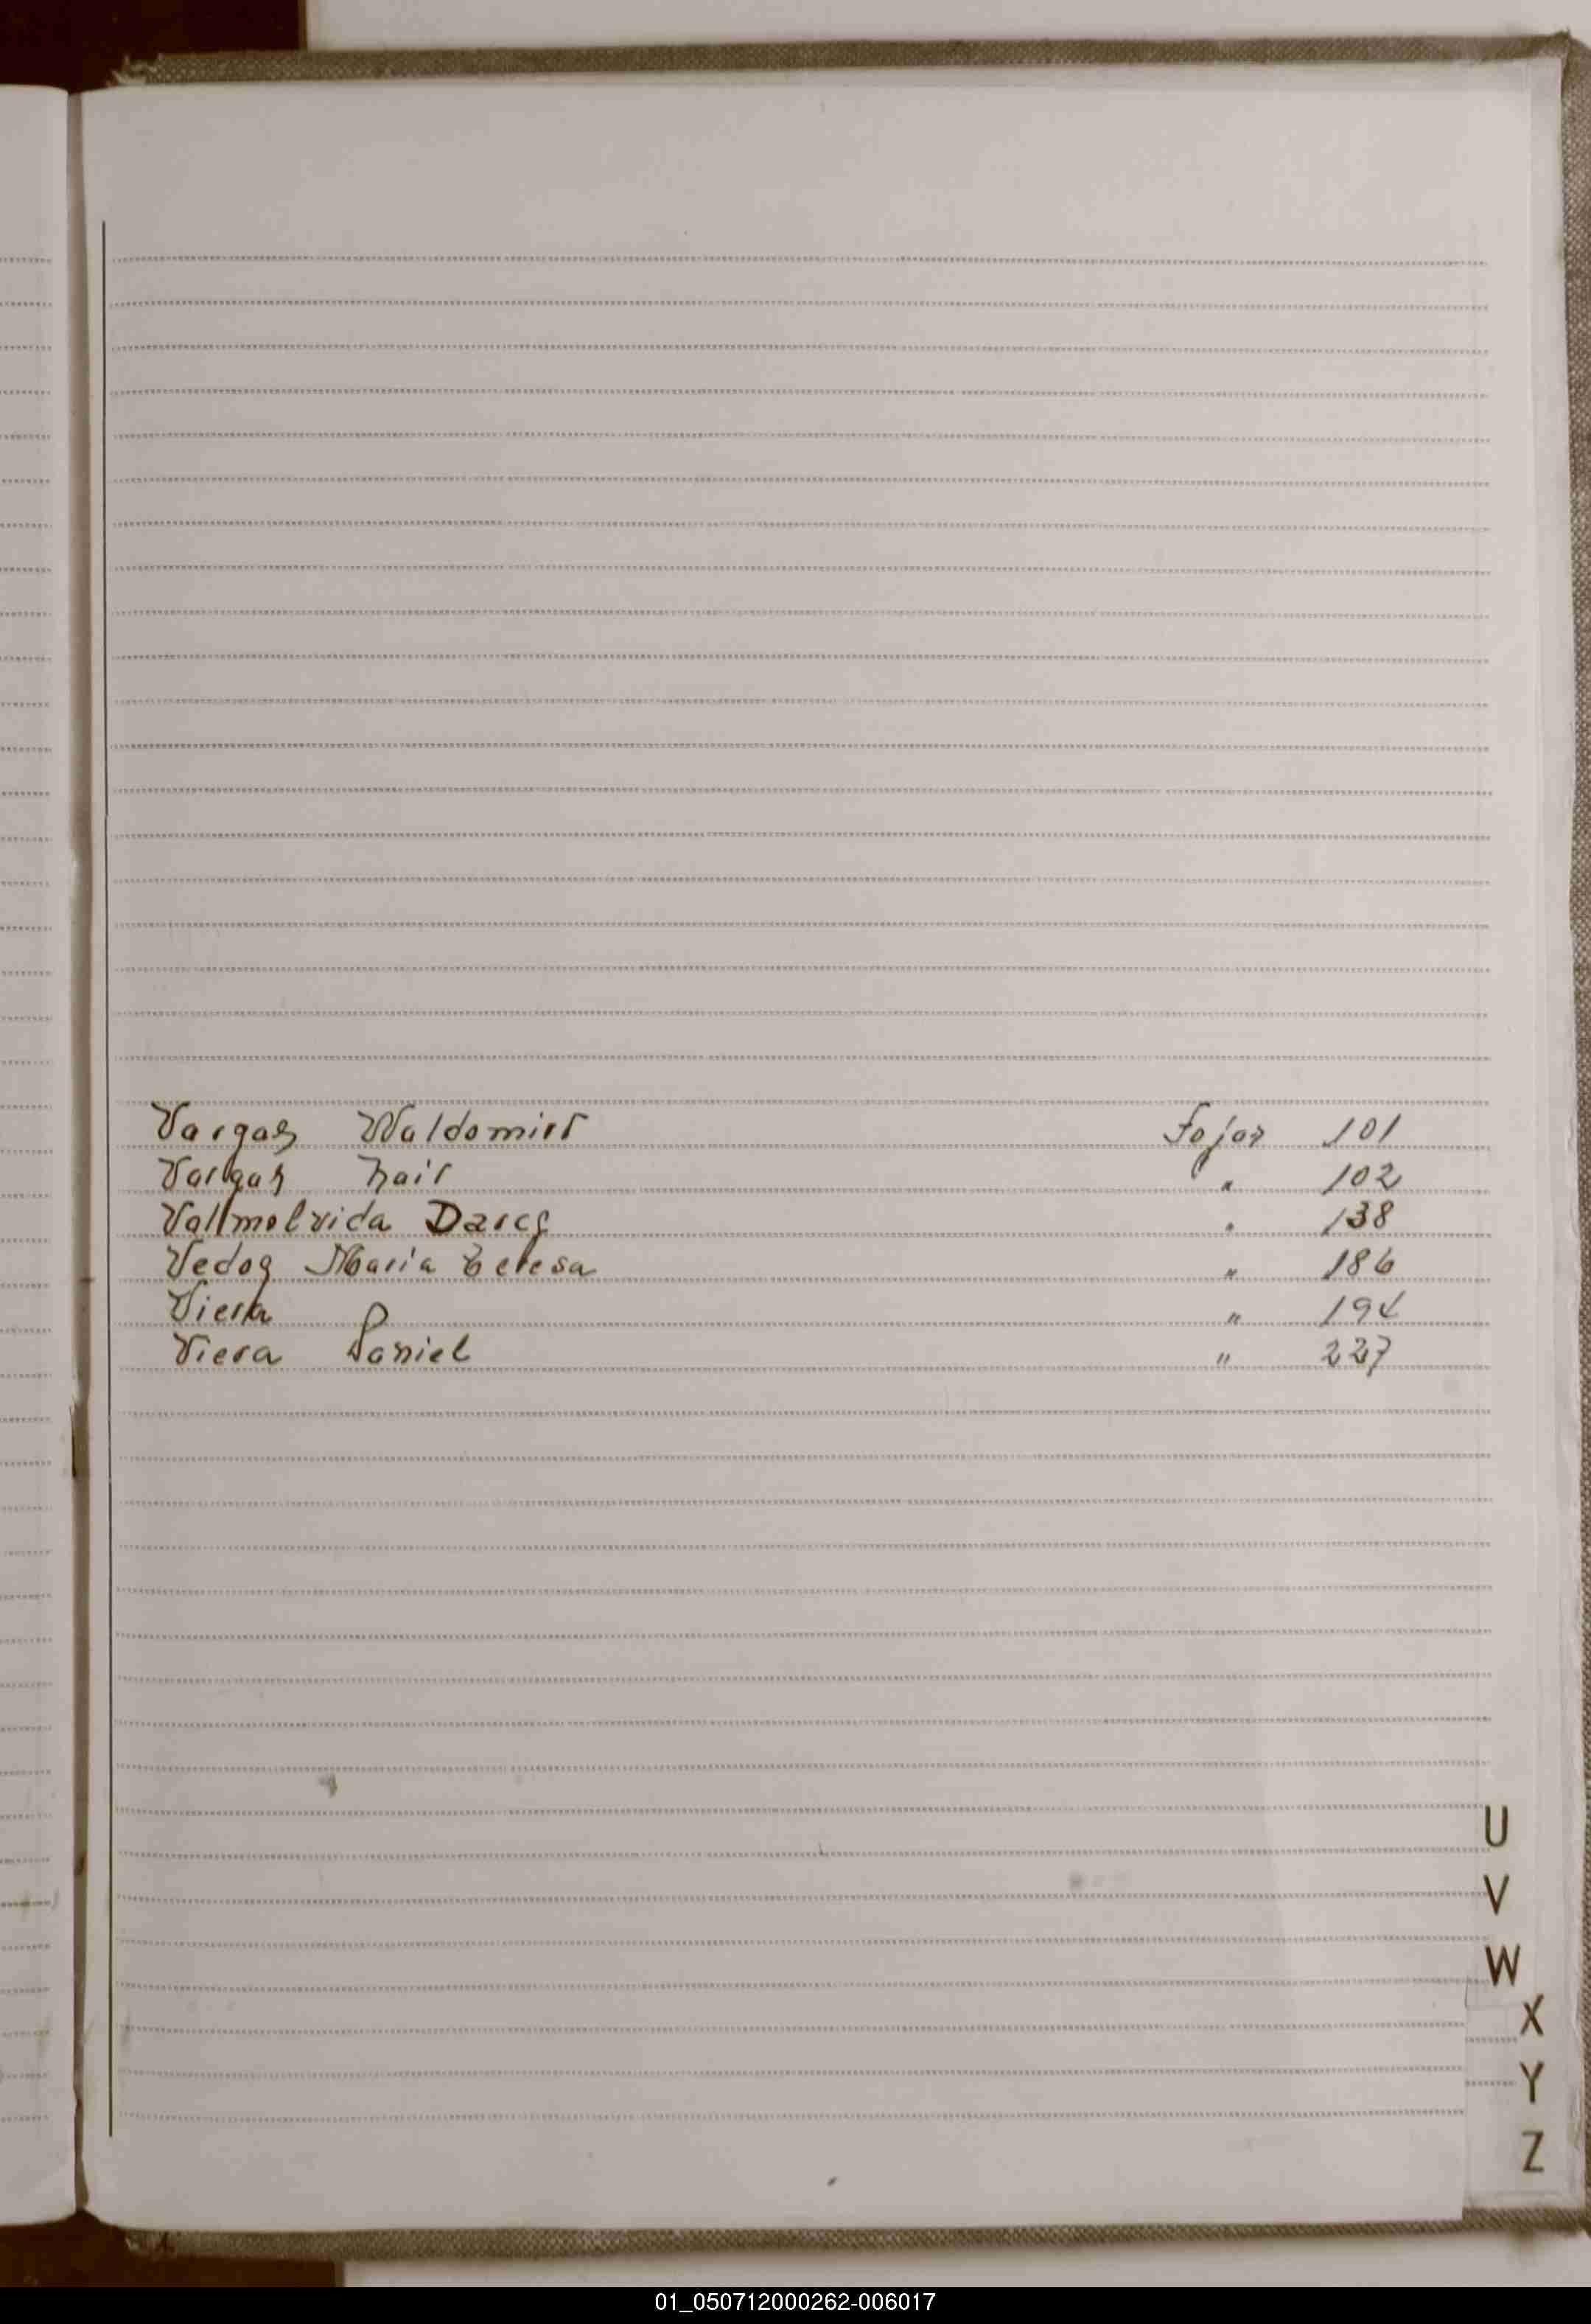 Vargas Waldomiro Fojas 101
Vargas Nair " 102
Vallmolvida Darcy " 138
Vedoy Maria Teresa " 186
Viera " 194
Viera Daniel " 227
U
V
W
X
Y
Z
01_050712000262-006017